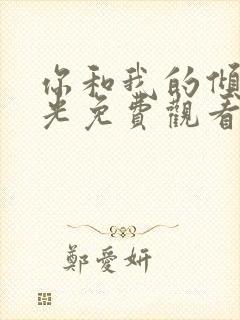 你和我的傾
光免費觀看
鄭愛妍